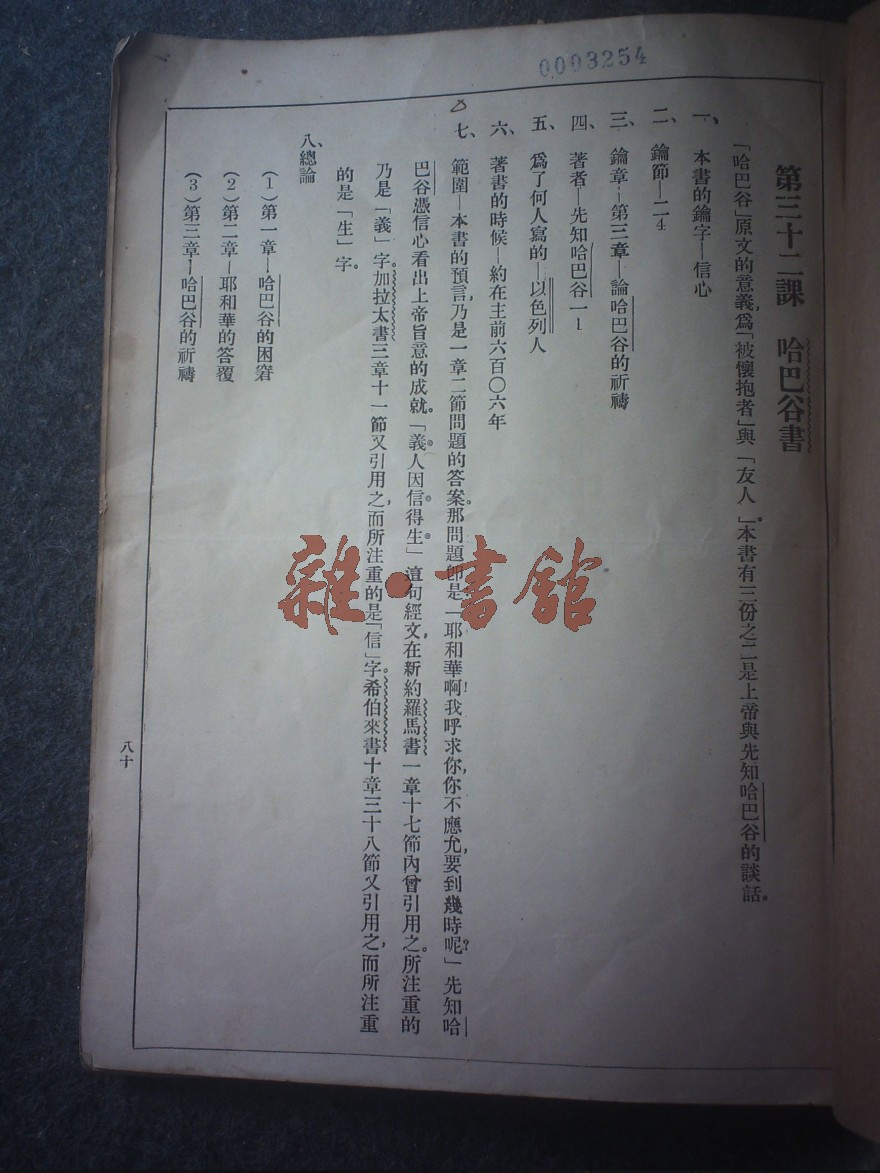 0003254
第三十二課 哈巴谷書
「哈巴谷」原文的意義,爲「被懷抱者」與「友人」。本書有三份之二是上帝與先知哈巴谷的談話。
一、本書的鑰字—信心
二、鑰節—二4
三、鑰章—第三章—論哈巴谷的祈禱
四、著者—先知哈巴谷一1
五、爲了何人寫的—以色列人
六、著書的時候—約在主前六百〇六年
七、範圍—本書的預言,乃是一章二節問題的答案。那問題卽是「耶和華啊!我呼求你,你不應允,要到幾時呢?」先知哈
巴谷憑信心看出上帝旨意的成就。「義人因信得生」這句經文,在新約羅馬書一章十七節內曾引用之。所注重的
乃是「義」字。加拉太書三章十一節又引用之,而所注重的是「信」字。希伯來書十章三十八節又引用之,而所注重
的是「生」字。
八、總論
(1)第一章—哈巴谷的困窘
(2)第二章—耶和華的答覆
(3)第三章—哈巴谷的祈禱
八十
雜·書館